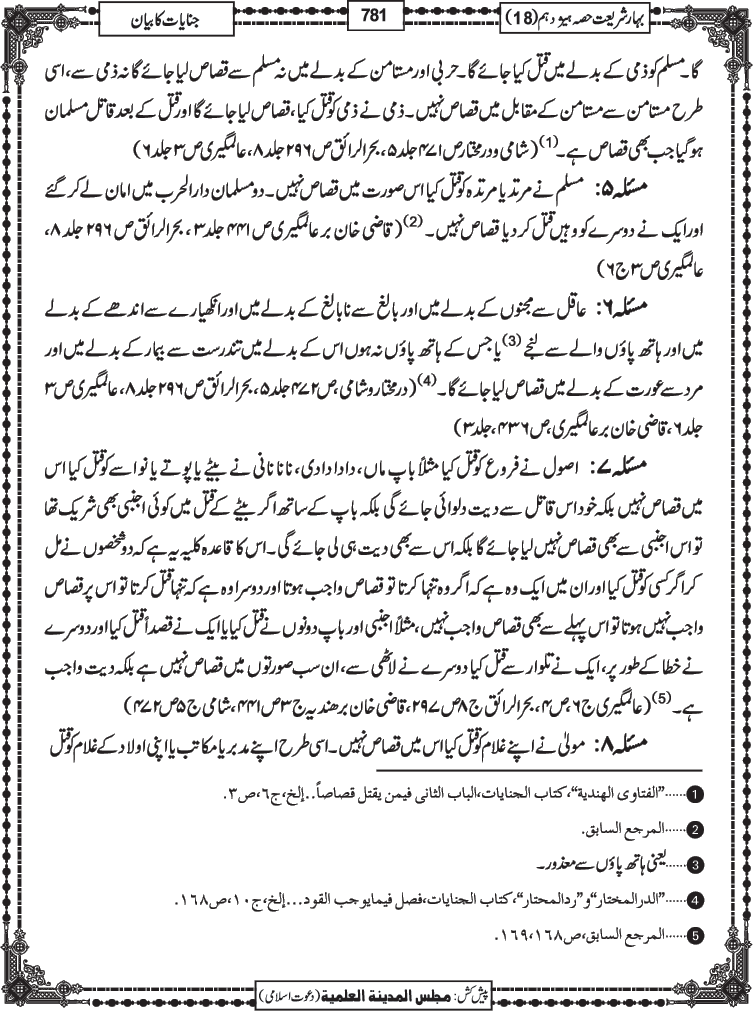 بہارشریعت حصہ ہیژدہم (18)
781
جنایات کا بیان
گا۔ مسلم کو ذمی کے بدلے میں قتل کیا جائے گا۔ حربی اور مستامن کے بدلے میں نہ مسلم سے قصاص لیا جائے گا نہ ذمی سے، اسی
طرح مستامن سے مستامن کے مقابل میں قصاص نہیں۔ ذمی نے ذمی کو قتل کیا، قصاص لیا جائے گا اور قتل کے بعد قاتل مسلمان
ہوگیا جب بھی قصاص ہے۔(1) (شامی و درمختار ص۴۷۱ جلد ۵، بحرالرائق ص۲۹۶ جلد ۸، عالمگیری ص۳ جلد ۶)
مسئلہ ۵: مسلم نے مرتد یا مرتدہ کو قتل کیا اس صورت میں قصاص نہیں۔ دو مسلمان دارالحرب میں امان لے کر گئے
اور ایک نے دوسرے کو وہیں قتل کر دیا قصاص نہیں۔(2) (قاضی خان بر عالمگیری ص ۴۴۱ جلد ۳، بحرالرائق ص ۲۹۶ جلد ۸،
عالمگیری ص ۳ ج ۶)
مسئلہ ۶: عاقل سے مجنوں کے بدلے میں اور بالغ سے نابالغ کے بدلے میں اور انکھیارے سے اندھے کے بدلے
میں اور ہاتھ پاؤں والے سے لنجے(3) یا جس کے ہاتھ پاؤں نہ ہوں اس کے بدلے میں تندرست سے بیمار کے بدلے میں اور
مرد سے عورت کے بدلے میں قصاص لیا جائے گا۔(4) (درمختار و شامی، ص۴۷۲ جلد ۵، بحرالرائق ص۲۹۶ جلد ۸، عالمگیری ص۳
جلد ۶، قاضی خان بر عالمگیری، ص ۴۳۶، جلد ۳)
مسئلہ ۷: اصول نے فروع کو قتل کیا مثلاً باپ ماں، دادا دادی، نانا نانی نے بیٹے یا پوتے یا نواسے کو قتل کیا اس
میں قصاص نہیں بلکہ خود اس قاتل سے دیت دلوائی جائے گی بلکہ باپ کے ساتھ اگر بیٹے کے قتل میں کوئی اجنبی بھی شریک تھا
تو اس اجنبی سے بھی قصاص نہیں لیا جائے گا بلکہ اس سے بھی دیت ہی لی جائے گی۔ اس کا قاعدہ کلیہ یہ ہے کہ دو شخصوں نے مل
کر اگر کسی کو قتل کیا اور ان میں ایک وہ ہے کہ اگر وہ تنہا کرتا تو قصاص واجب ہوتا اور دوسرا وہ ہے کہ تنہا قتل کرتا تو اس پر قصاص
واجب نہیں ہوتا تو اس پہلے سے بھی قصاص واجب نہیں، مثلاً اجنبی اور باپ دونوں نے قتل کیا یا ایک نے قصداً قتل کیا اور دوسرے
نے خطا کے طور پر، ایک نے تلوار سے قتل کیا دوسرے نے لاٹھی سے، ان سب صورتوں میں قصاص نہیں ہے بلکہ دیت واجب
ہے۔(5) (عالمگیری ج ۶، ص۴، بحرالرائق ج ۸ ص ۲۹۷، قاضی خان بر ہندیہ ج ۳ ص ۴۴۱، شامی ج ۵ ص ۴۷۲)
مسئلہ ۸: مولیٰ نے اپنے غلام کو قتل کیا اس میں قصاص نہیں۔ اسی طرح اپنے مدبر یا مکاتب یا اپنی اولاد کے غلام کو قتل
1 ......"الفتاوى الهندية"، كتاب الجنايات، الباب الثانى فيمن يقتل قصاصاً..إلخ، ج٦، ص٣.
2 ......المرجع السابق.
3 ......یعنی ہاتھ پاؤں سے معذور۔
4 ......"الدرالمختار" و "ردالمحتار"، كتاب الجنايات، فصل فيمايوجب القود...إلخ، ج١٠، ص١٦٨.
5 ......المرجع السابق، ص١٦٨، ١٦٩.
پیش کش: مجلس المدینة العلمیة (دعوت اسلامی)